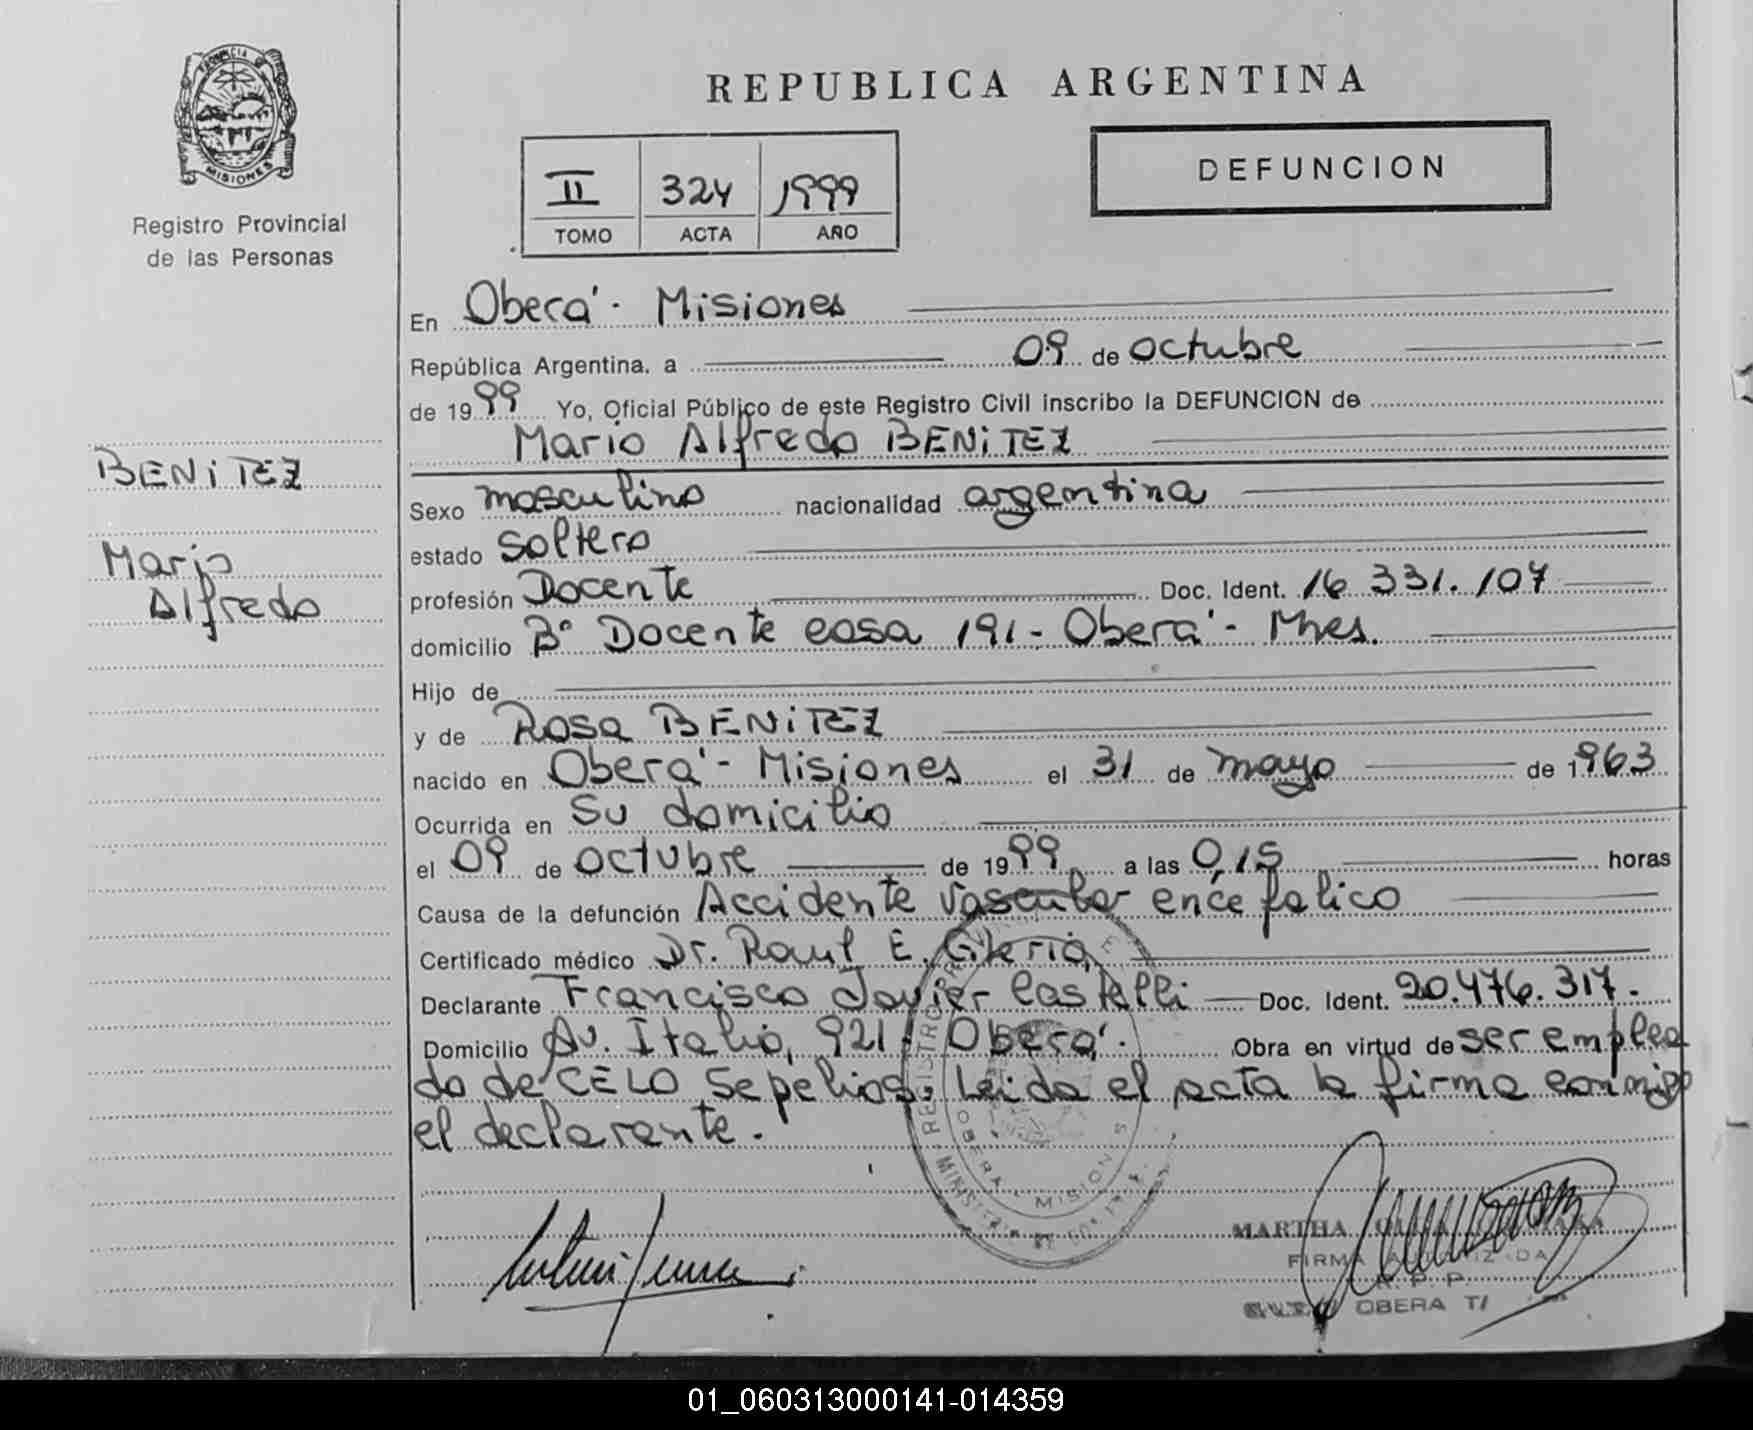 PROVINCIA DE
MISIONES
Registro Provincial
de las Personas
REPUBLICA ARGENTINA
II 324 1999
TOMO ACTA AÑO
DEFUNCION
En Oberá - Misiones
República Argentina, a 09 de octubre
de 1999 Yo, Oficial Público de este Registro Civil inscribo la DEFUNCION de
Mario Alfredo BENiTEZ
BENiTEZ
Mario
Alfredo
Sexo masculino nacionalidad argentina
estado soltero
profesión Docente Doc. Ident. 16.331.107
domicilio Bº Docente casa 191 - Oberá - Mnes.
Hijo de
y de Rosa BENiTEZ
nacido en Oberá - Misiones el 31 de mayo de 1963
Ocurrida en su domicilio
el 09 de octubre de 1999 a las 0,15 horas
Causa de la defunción Accidente vascular encefalico
Certificado médico Dr. Raul E.
Declarante Francisco Javier Castelli Doc. Ident. 20.476.317.
Domicilio Av. Italia, 921 Oberá. Obra en virtud de ser emplea
do de CELO Sepelios. Leida el acta la firma conmigo
el declarante.
REGISTRO
OBERA - MISIONES
MARTHA
FIRMA AUTORIZADA
R. P. P.
OBERA
01_060313000141-014359